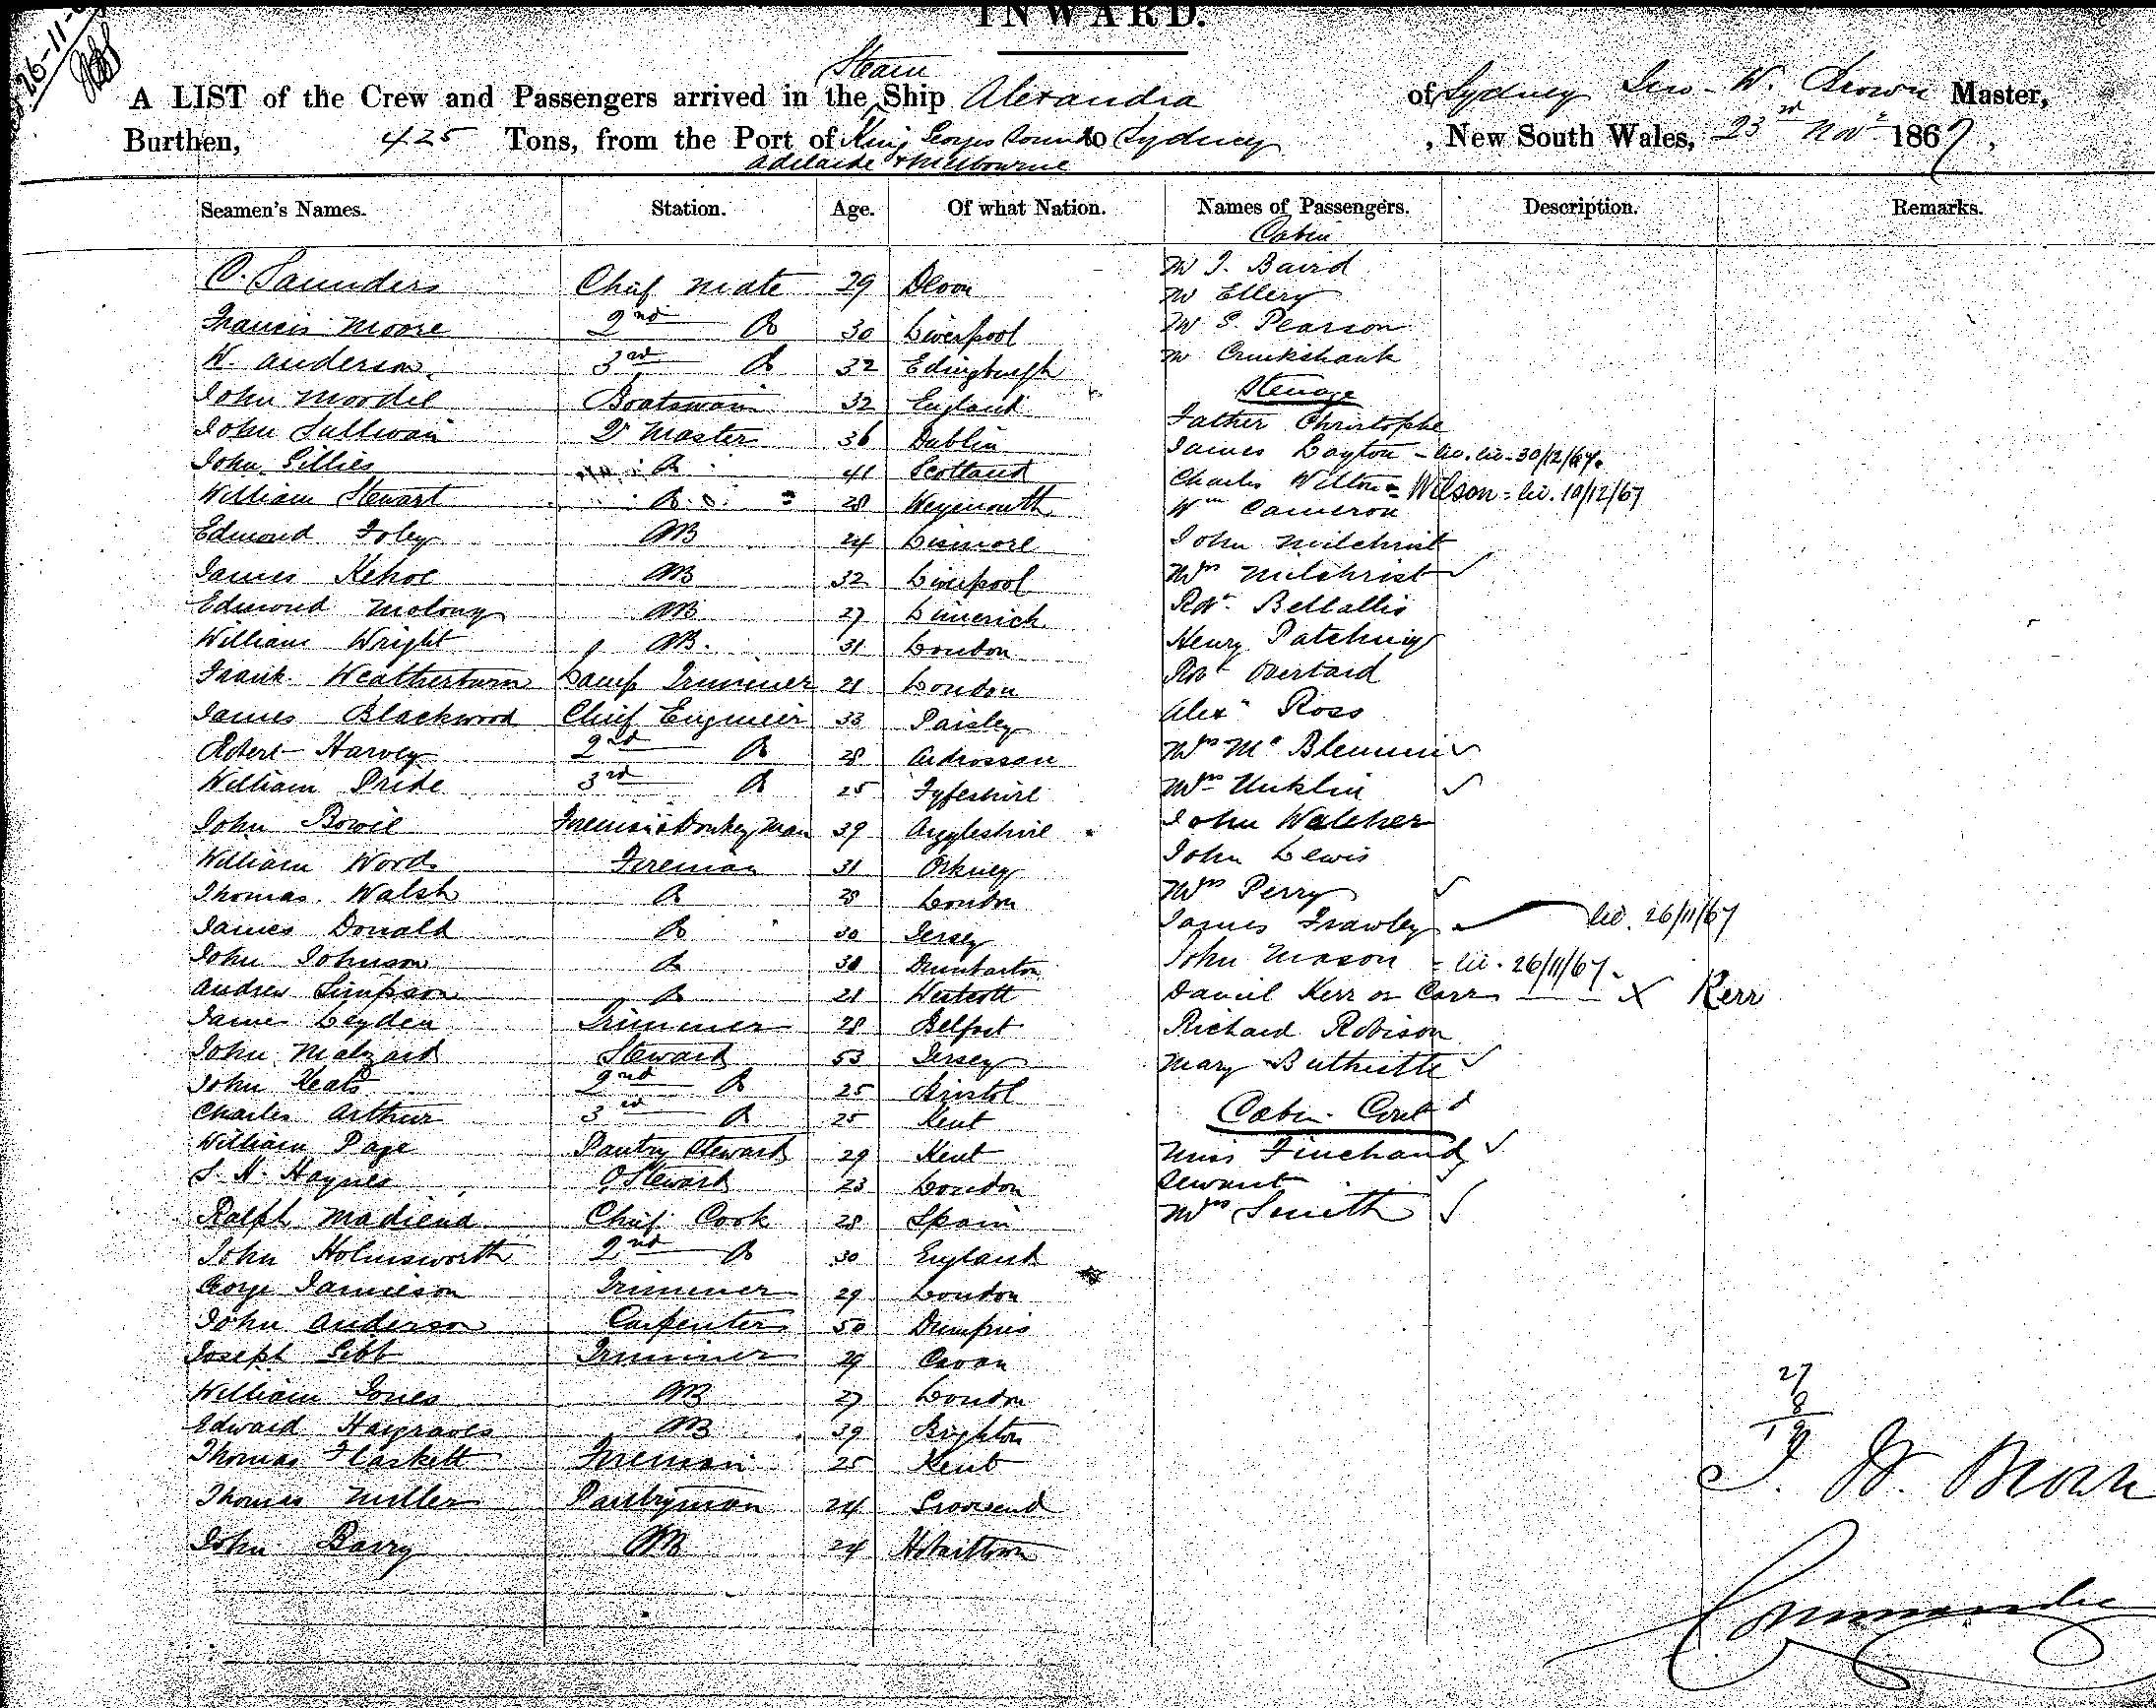 26-11-
INWARD.
Steam
A LIST of the Crew and Passengers arrived in the Ship Alexandra of Sydney Jno. W. Brown Master,
Burthen, 425 Tons, from the Port of King Georges Sound to Sydney, New South Wales, 23rd Novr 1867,
Adelaide & Melbourne
Seamen's Names. Station. Age. Of what Nation. Names of Passengers. Description. Remarks.
Cabin
C. Saunders Chief Mate 29 Devon
Francis Moore 2nd Do 30 Liverpool
W. Anderson 3rd Do 32 Edingburgh
John Mordel Boatswain 32 England
John Sullivan Qr Master 36 Dublin
John Gillies Do 41 Scotland
William Stewart Do 28 Weymouth
Edmond Foley AB 24 Lismore
James Kehoe AB 32 Liverpool
Edmond Molony AB 27 Limerick
William Wright AB. 31 London
Frank Weatherturn Lamp Trimmer 21 London
James Blackwood Chief Engineer 33 Paisley
Robert Harvey 2nd Do 28 Ardrossan
William Pride 3rd Do 25 Fyfeshire
John Bowie Fireman & Donkey Man 39 Argyleshire
William Wood Fireman 31 Orkney
Thomas Walsh Do 28 London
James Donald Do 30 Jersey
John Johnson Do 30 Dumbarton
Andrew Simpson Do 21
James Leyden Trimmer 28 Belfast
John Malzard Steward 53 Jersey
John Keats 2nd Do 25 Bristol
Charles Arthur 3rd Do 25 Kent
William Page Pantry Steward 29 Kent
S. H. Haynes Steward 23 London
Ralph Madiena Chief Cook 28 Spain
John Holmsworth 2nd Do 30 England
George Jamieson Trimmer 29 London
John Anderson Carpenter 50 Dumfries
Joseph Gibb Trimmer 29 Cavan
William Jones AB 27 London
Edward Hargraves AB 39 Brighton
Thomas Flaskett Fireman 25 Kent
Thomas Miller Pantryman 24 Gravesend
John Barry AB 24 Hobarttown
Mr J. Baird
Mr Ellery
Mr S. Pearson
Mr Cruikshank
Steerage
Father Christophe
James Layton - lic. lic. 30/12/67.
Charles Wilton = Wilson = lic. 10/12/67
Wm Cameron
John Milchrist
Mrs Milchrist ✓
Robt. Bellallis
Henry Patching
Robt Overtaid
Alexr Ross
Mrs Mc Blemmi ✓
Mrs Hinklin ✓
John Walcher
John Lewis
Mrs Perry ✓
James Frawley lic. 26/11/67
John Mason - lic. 26/11/67.
Daniel Kerr or Carr X Kerr
Richard Robison
Mary Buthistle ✓
Cabin Contd
Miss Finchand ✓
Servant
Mrs Smith ✓
27
8
19
J. W. Brown
Commander